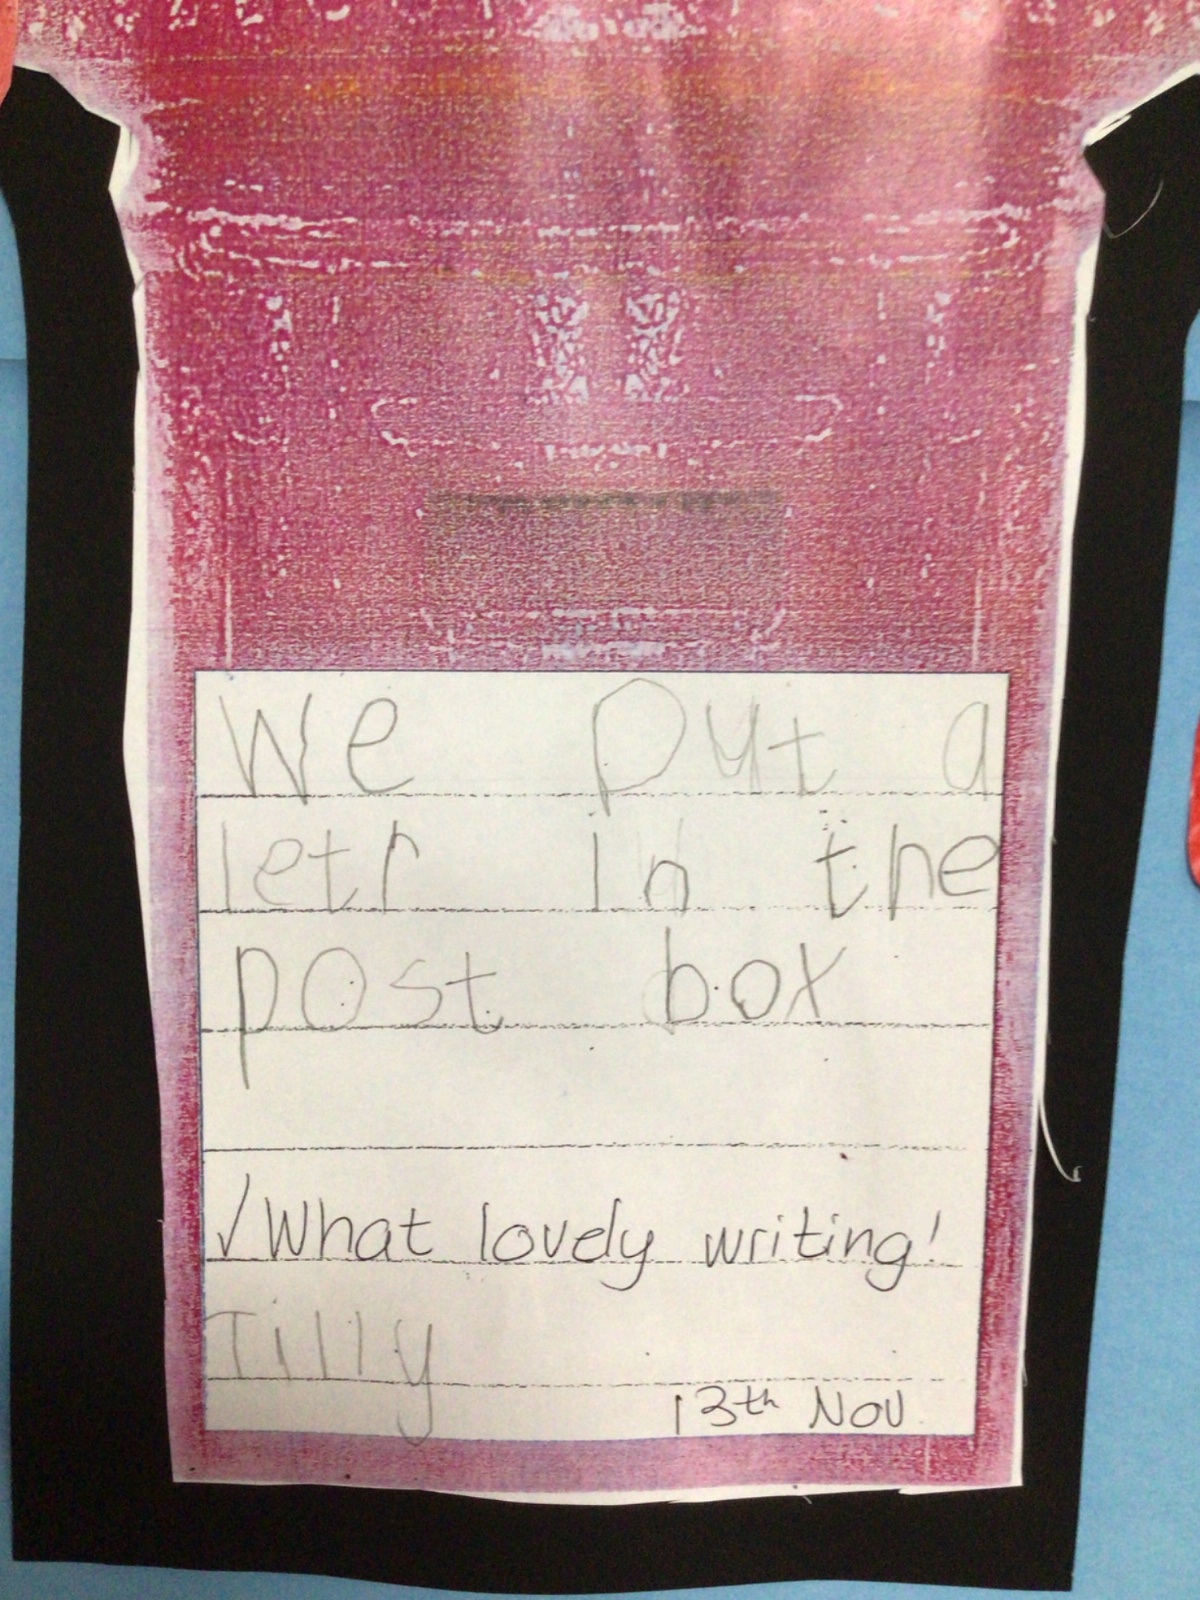 We put a
letr in the
post box
✓ What lovely writing!
Tilly
13th Nov